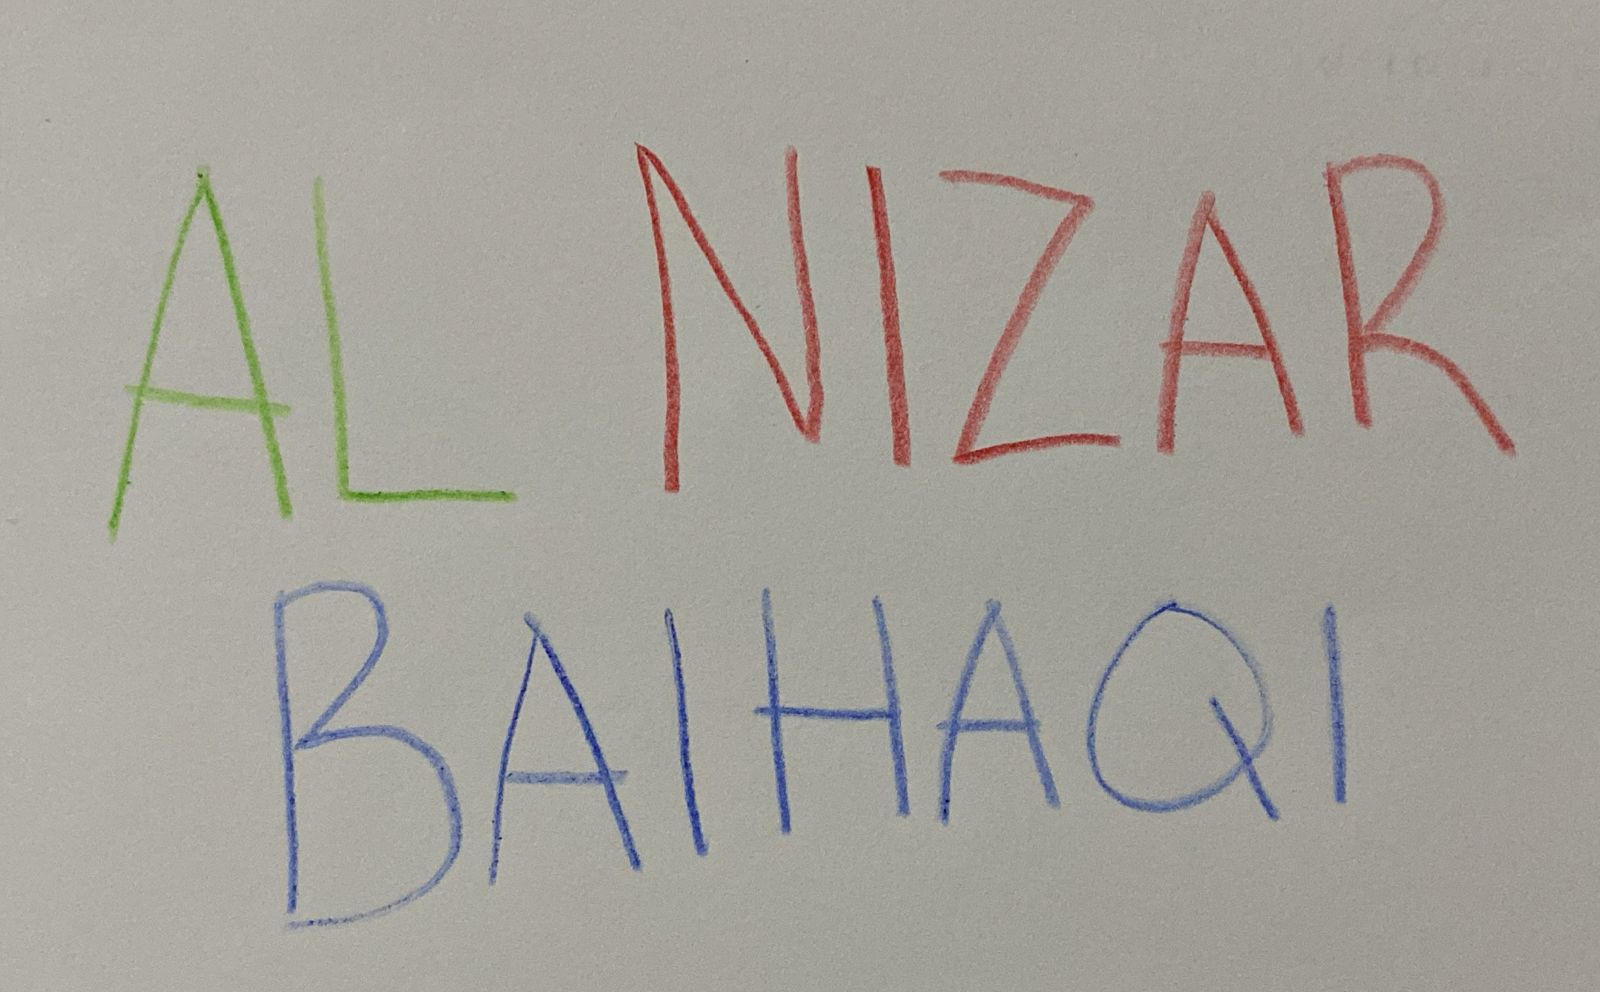 AL NIZAR
BAIHAQI